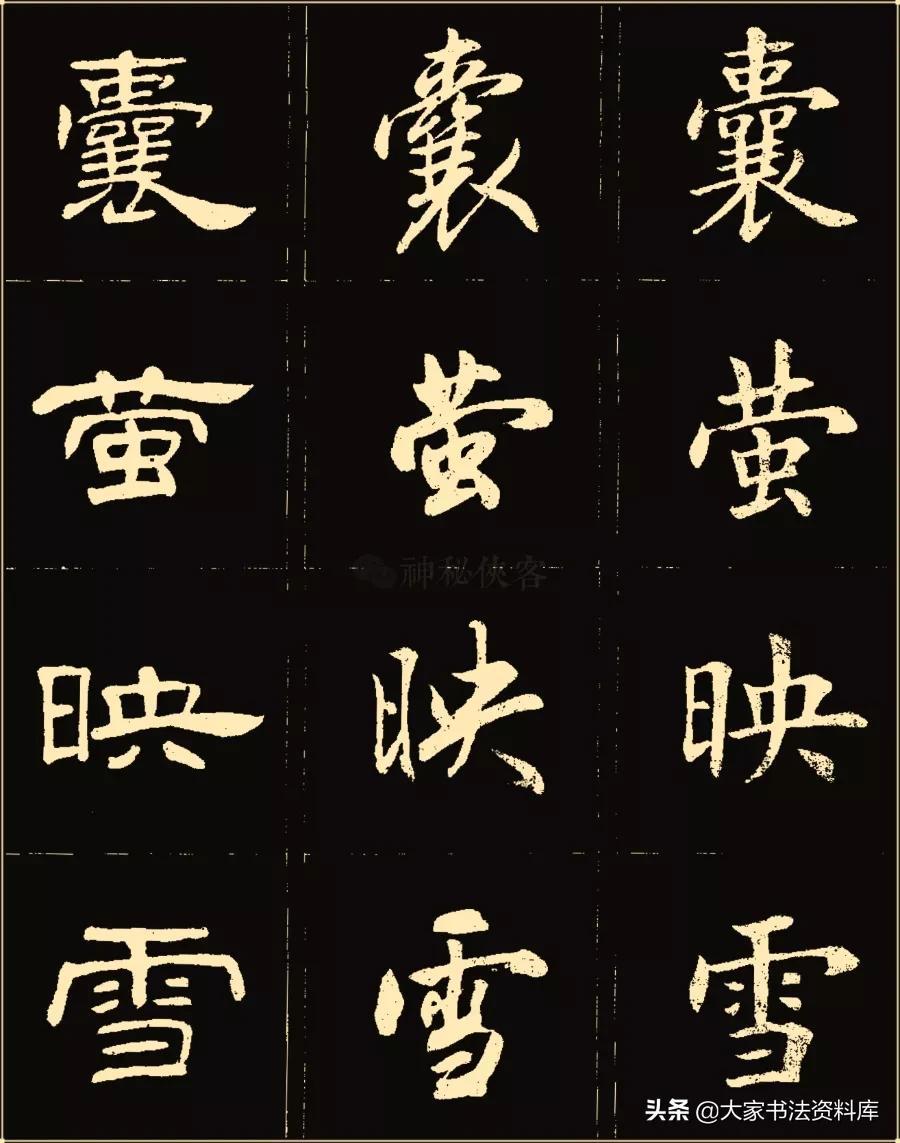 囊 囊 囊
萤 萤 萤
神秘侠客
映 映 映
雪 雪 雪
头条 @大家书法资料库